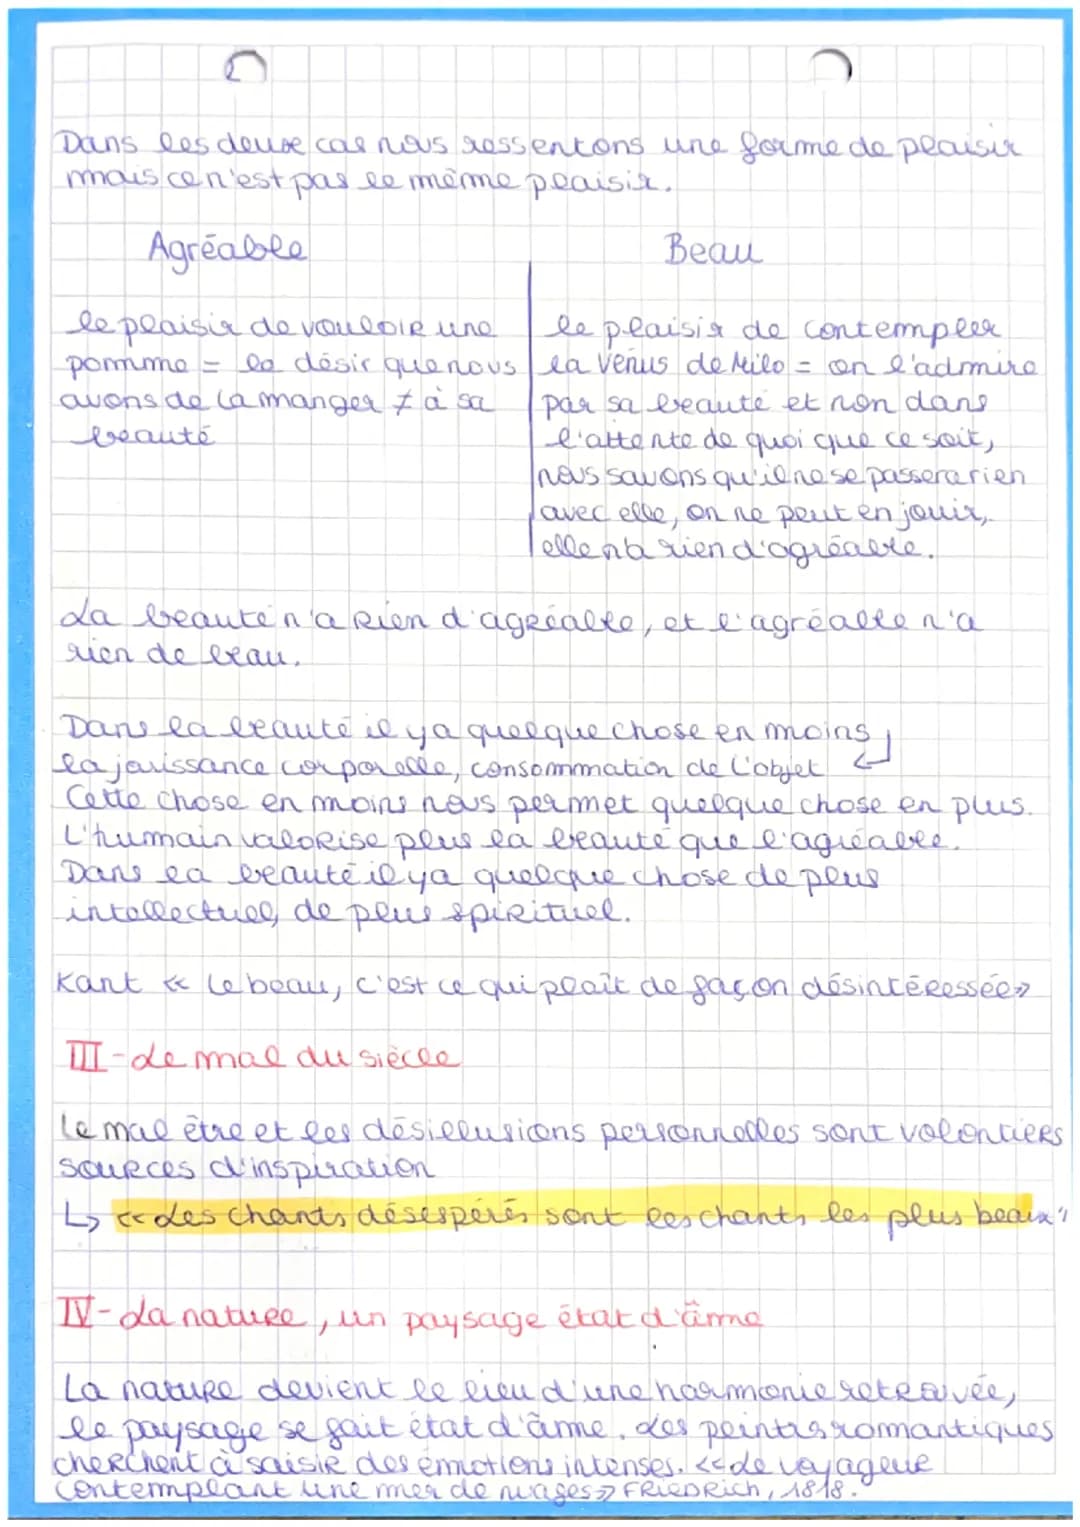 Dans les deux cas nous ressentons une forme de plaisir
mais ce n'est pas le même plaisir.
Agréable
le plaisir de vouloir une
pomme = le désir que nous
avons de la manger ≠ à sa
beauté
Beau
le plaisir de contempler
la Vénus de Milo = on l'admire
par sa beauté et non dans
l'attente de quoi que ce soit,
nous savons qu'il ne se passera rien
avec elle, on ne peut en jouir,
elle n'a rien d'agréable.
La beauté n'a rien d'agréable, et l'agréable n'a
rien de beau.
Dans la beauté il y a quelque chose en moins
la jouissance corporelle, consommation de l'objet ↵
Cette chose en moins nous permet quelque chose en plus.
L'humain valorise plus la beauté que l'agréable.
Dans la beauté il y a quelque chose de plus
intellectuel, de plus spirituel.
Kant « le beau, c'est ce qui plaît de façon désintéressée»
III - Le mal du siècle
Le mal être et les désillusions personnelles sont volontiers
sources d'inspiration
↳ « Les chants désespérés sont les chants les plus beaux"
IV - La nature, un paysage état d'âme
La nature devient le lieu d'une harmonie retrouvée,
le paysage se fait état d'âme. Les peintres romantiques
cherchent à saisir des émotions intenses. «Le voyageur
contemplant une mer de nuages» FRIEDRICH, 1818.